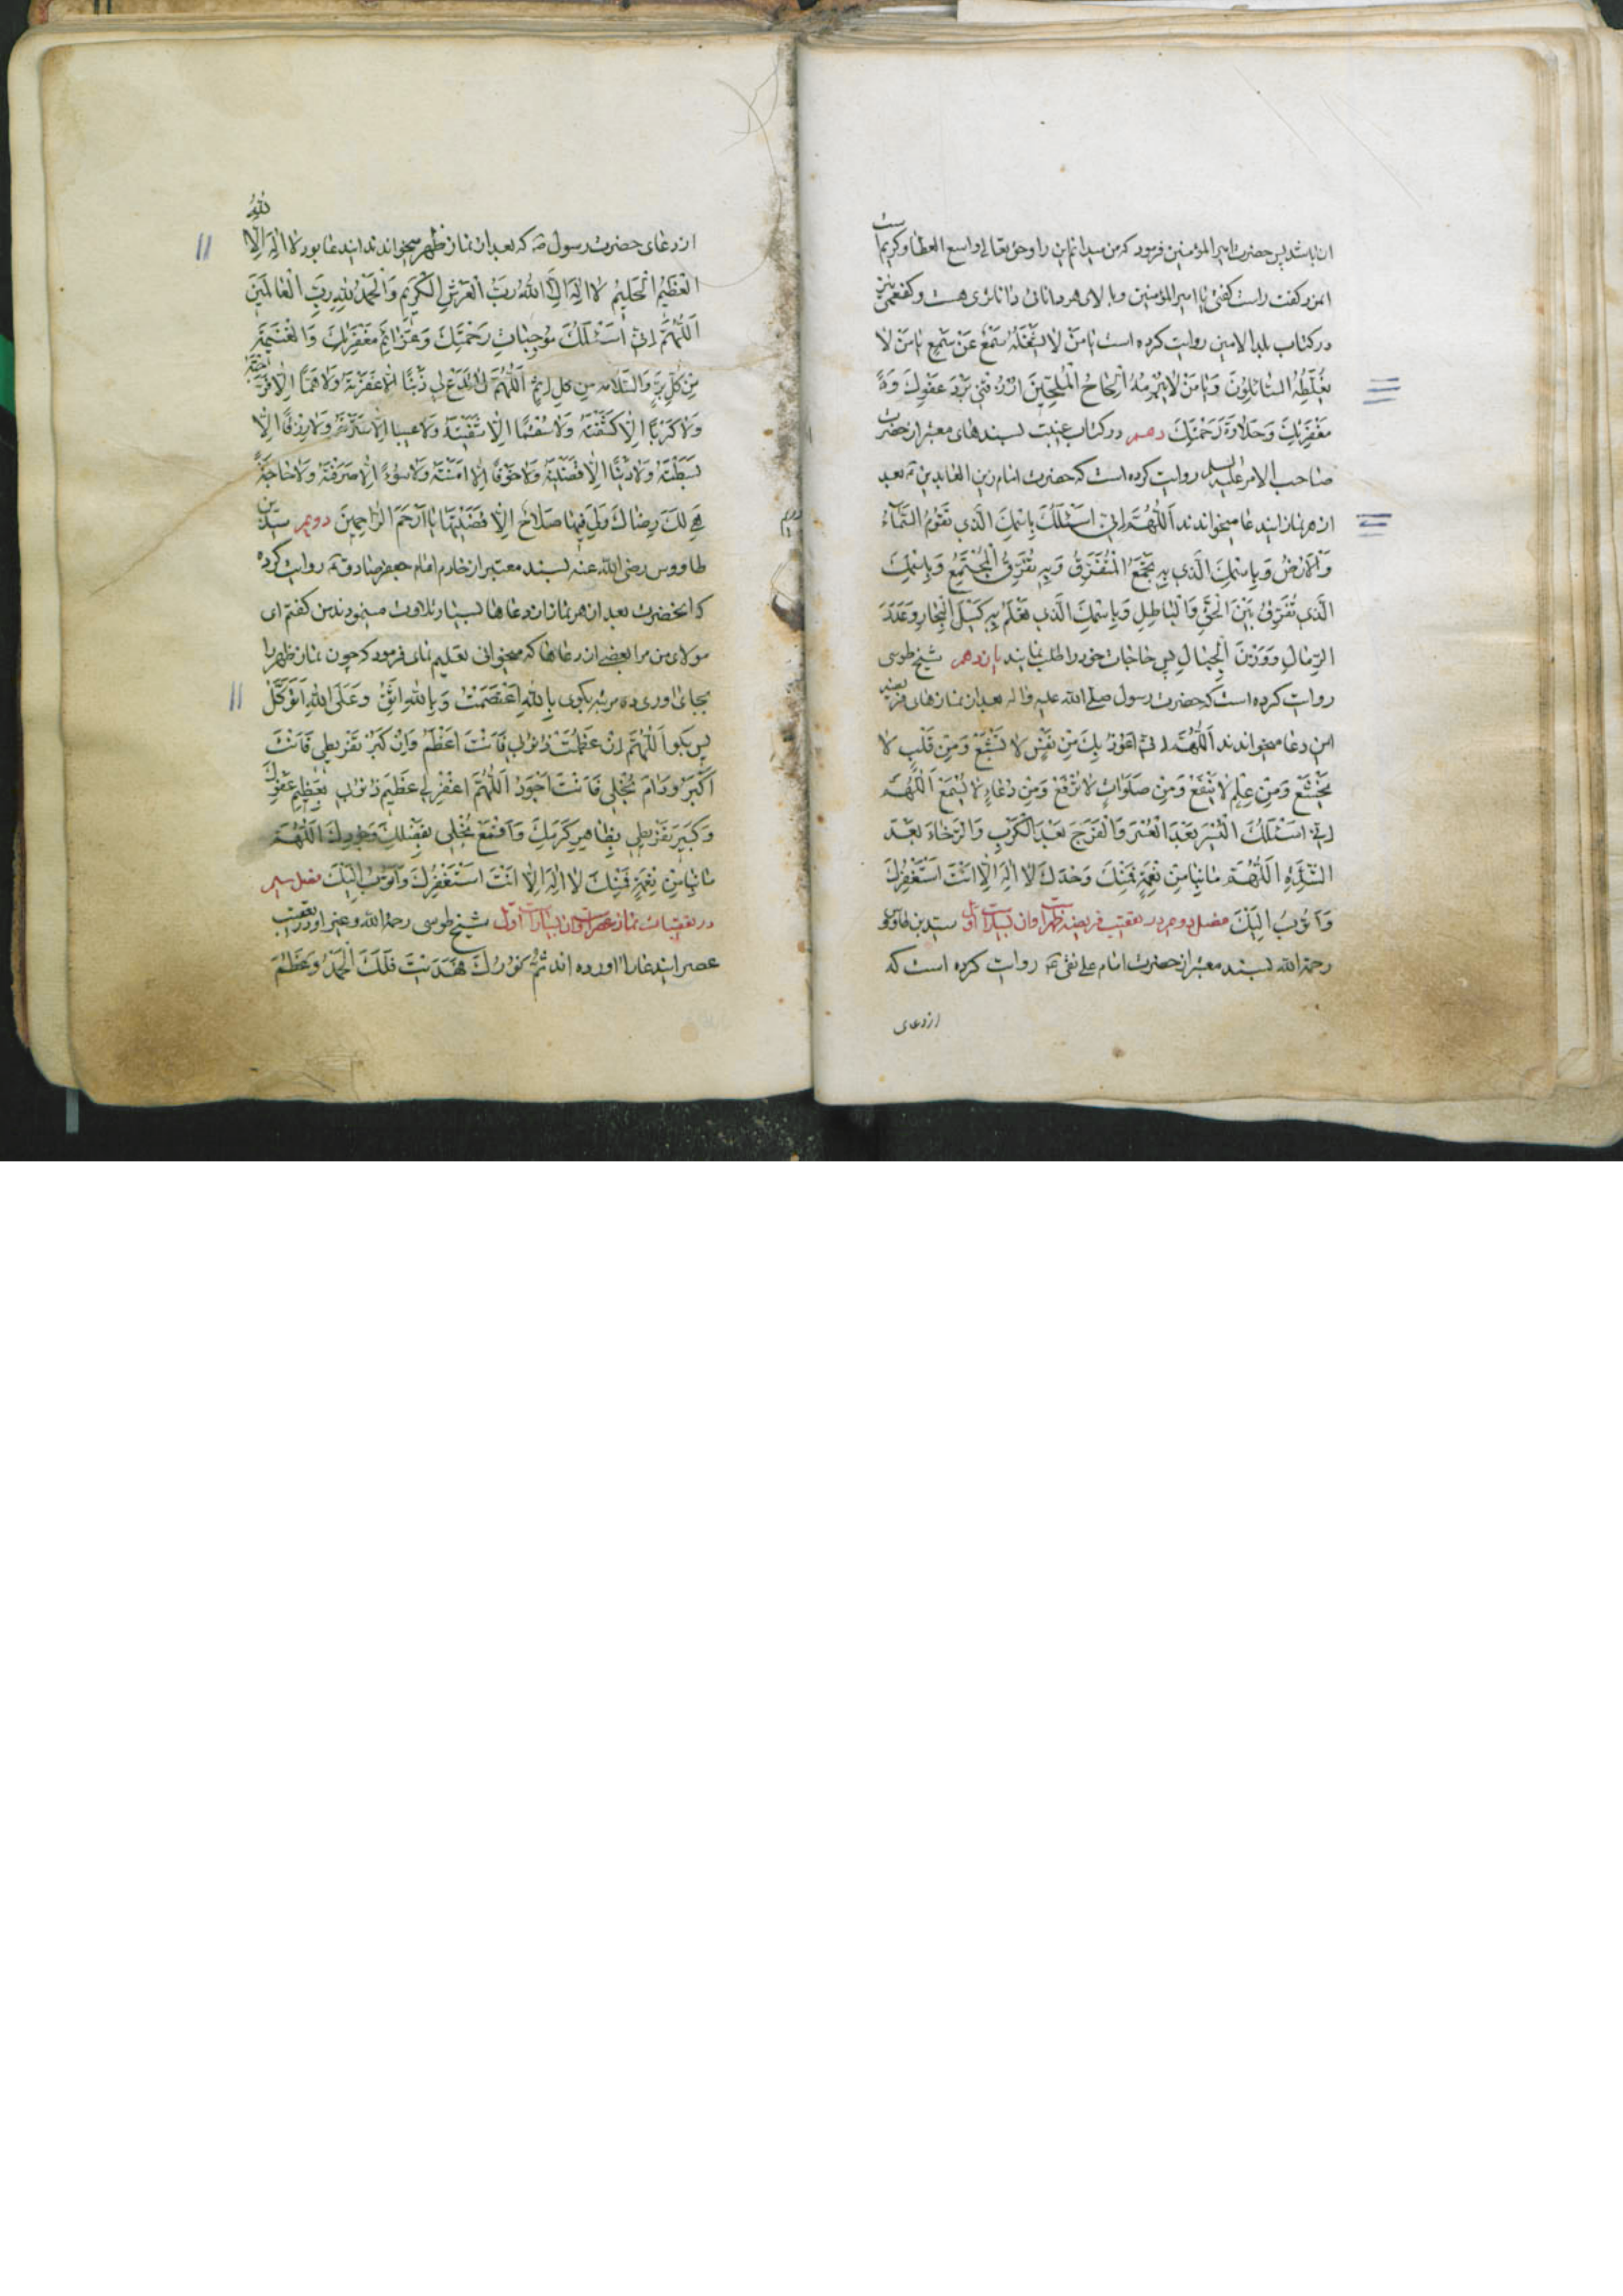 ان باشد پس حضرت امیر المؤمنین فرمود که من میدانم این را وحق تعالی واسع العطا وکریم است
ان مرد کفت راست کفتی یا امیر المؤمنین وبالای هر دانائی دانائری هست وکفعمی نیز
در کتاب بلد الامین روایت کرده است یا مَنْ لا یَشْغَلُهُ سَمْعٌ عَنْ سَمْعٍ یا مَنْ لا
یُغَلِّطُهُ السّائِلُونَ وَیا مَنْ لا یُبْرِمُهُ اِلْحاحُ الْمُلِحّینَ اَذِقْنی بَرْدَ عَفْوِكَ وَ
مَغْفِرَتِكَ وَحَلاوَةَ رَحْمَتِكَ دهم در کتاب غیبت بسندهای معتبر از حضرت
صاحب الامر علیه السلم روایت کرده است که حضرت امام زین العابدین ع بعد
از هر نماز ایندعا میخواندند اَللّهُمَّ اِنّی اَسْئَلُكَ بِاسْمِكَ الَّذی تَقُومُ السَّمآءُ
وَالْاَرْضُ وَبِاسْمِكَ الَّذی بِهِ تَجْمَعُ الْمُتَفَرِّقَ وَبِهِ تُفَرِّقُ الْمُجْتَمِعَ وَبِاسْمِكَ
الَّذی تُفَرِّقُ بَیْنَ الْحَقِّ وَالْباطِلِ وَبِاسْمِكَ الَّذی تَعْلَمُ بِهِ کَیْلَ الْبِحارِ وَعَدَدَ
الرِّمالِ وَوَزْنَ الْجِبالِ پس حاجات خود را طلب نمایند یازدهم شیخ طوسی
روایت کرده است که حضرت رسول صلی الله علیه واله بعد از نمازهای فریضه
این دعا میخواندند اَللّهُمَّ اِنّی اَعُوذُ بِكَ مِنْ نَفْسٍ لا تَشْبَعُ وَمِنْ قَلْبٍ لا
یَخْشَعُ وَمِنْ عِلْمٍ لا یَنْفَعُ وَمِنْ صَلَواتٍ لا تُرْفَعُ وَمِنْ دُعاءٍ لا یُسْمَعُ اَللّهُمَّ
اِنّی اَسْئَلُكَ الْیُسْرَ بَعْدَ الْعُسْرِ وَالْفَرَجَ بَعْدَ الْکَرْبِ وَالرَّخاءَ بَعْدَ
الشِّدَّةِ اَللّهُمَّ ما بِنا مِنْ نِعْمَةٍ فَمِنْكَ وَحْدَكَ لا اِلهَ اِلّا اَنْتَ اَسْتَغْفِرُكَ
وَاَتُوبُ اِلَیْكَ فصل دوم در تعقیب فریضه ظهر است وان بسیار است اول سید بن طاوس
رحمة الله بسند معتبر از حضرت امام علی نقی ع روایت کرده است که
از دعای
از دعای حضرت رسول ص که بعد از نماز ظهر میخواندند ایندعا بود لا اِلهَ اِلَّا اللهُ
الْعَظیمُ الْحَلیمُ لا اِلهَ اِلَّا اللهُ رَبُّ الْعَرْشِ الْکَریمِ وَالْحَمْدُ لِلّهِ رَبِّ الْعالَمینَ
اَللّهُمَّ اِنّی اَسْئَلُكَ مُوجِباتِ رَحْمَتِكَ وَعَزائِمَ مَغْفِرَتِكَ وَالْغَنیمَةَ
مِنْ کُلِّ بِرٍّ وَالسَّلامَةَ مِنْ کُلِّ اِثْمٍ اَللّهُمَّ لا تَدَعْ لی ذَنْبًا اِلّا غَفَرْتَهُ وَلا هَمًّا اِلّا فَرَّجْتَهُ
وَلا کَرْبًا اِلّا کَشَفْتَهُ وَلا سُقْمًا اِلّا شَفَیْتَهُ وَلا عَیْبا اِلّا سَتَرْتَهُ وَلا رِزْقًا اِلّا
بَسَطْتَهُ وَلا دَیْنًا اِلّا قَضَیْتَهُ وَلا خَوْفًا اِلّا اٰمَنْتَهُ وَلا سُوءً اِلّا صَرَفْتَهُ وَلا حاجَةً
هِیَ لَكَ رِضًا وَلِیَ فیها صَلاحٌ اِلّا قَضَیْتَها یا اَرْحَمَ الرّاحِمینَ دویم سید بن
طاووس رضی الله عنه بسند معتبر از خادم امام جعفر صادق ع روایت کرده
که انحضرت بعد از هر نماز از دعاها بسیار تلاوت مینمودند من کفتم ای
مولای من مرا بعضی از دعاها که میخوانی تعلیم نمای فرمود که چون نماز ظهر را
بجای اوری ده مرتبه بکوی بِاللهِ اعْتَصَمْتُ وَبِاللهِ اَثِقُ وَعَلَی اللهِ اَتَوَکَّلُ
پس بکو اَللّهُمَّ اِنْ عَظُمَتْ ذُنُوبی فَاَنْتَ اَعْظَمُ وَاِنْ کَبُرَ تَفْریطی فَاَنْتَ
اَکْبَرُ وَدامَ بُخْلی فَاَنْتَ اَجْوَدُ اَللّهُمَّ اغْفِرْ لی عَظیمَ ذُنُوبی بِعَظیمِ عَفْوِكَ
وَکَبیرَ تَفْریطی بِظاهِرِ کَرَمِكَ وَاقْمَعْ بُخْلی بِفَضْلِ جُودِكَ اَللّهُمَّ
ما بِنا مِنْ نِعْمَةٍ فَمِنْكَ لا اِلهَ اِلّا اَنْتَ اَسْتَغْفِرُكَ وَاَتُوبُ اِلَیْكَ فصل سیم
در تعقیبات نماز عصر است وان بسیار است اول شیخ طوسی رحمة الله وغیر او در تعقیب
عصر ایندعا را اورده اند تَمَّ نُورُكَ فَهَدَیْتَ فَلَكَ الْحَمْدُ وَعَظُمَ